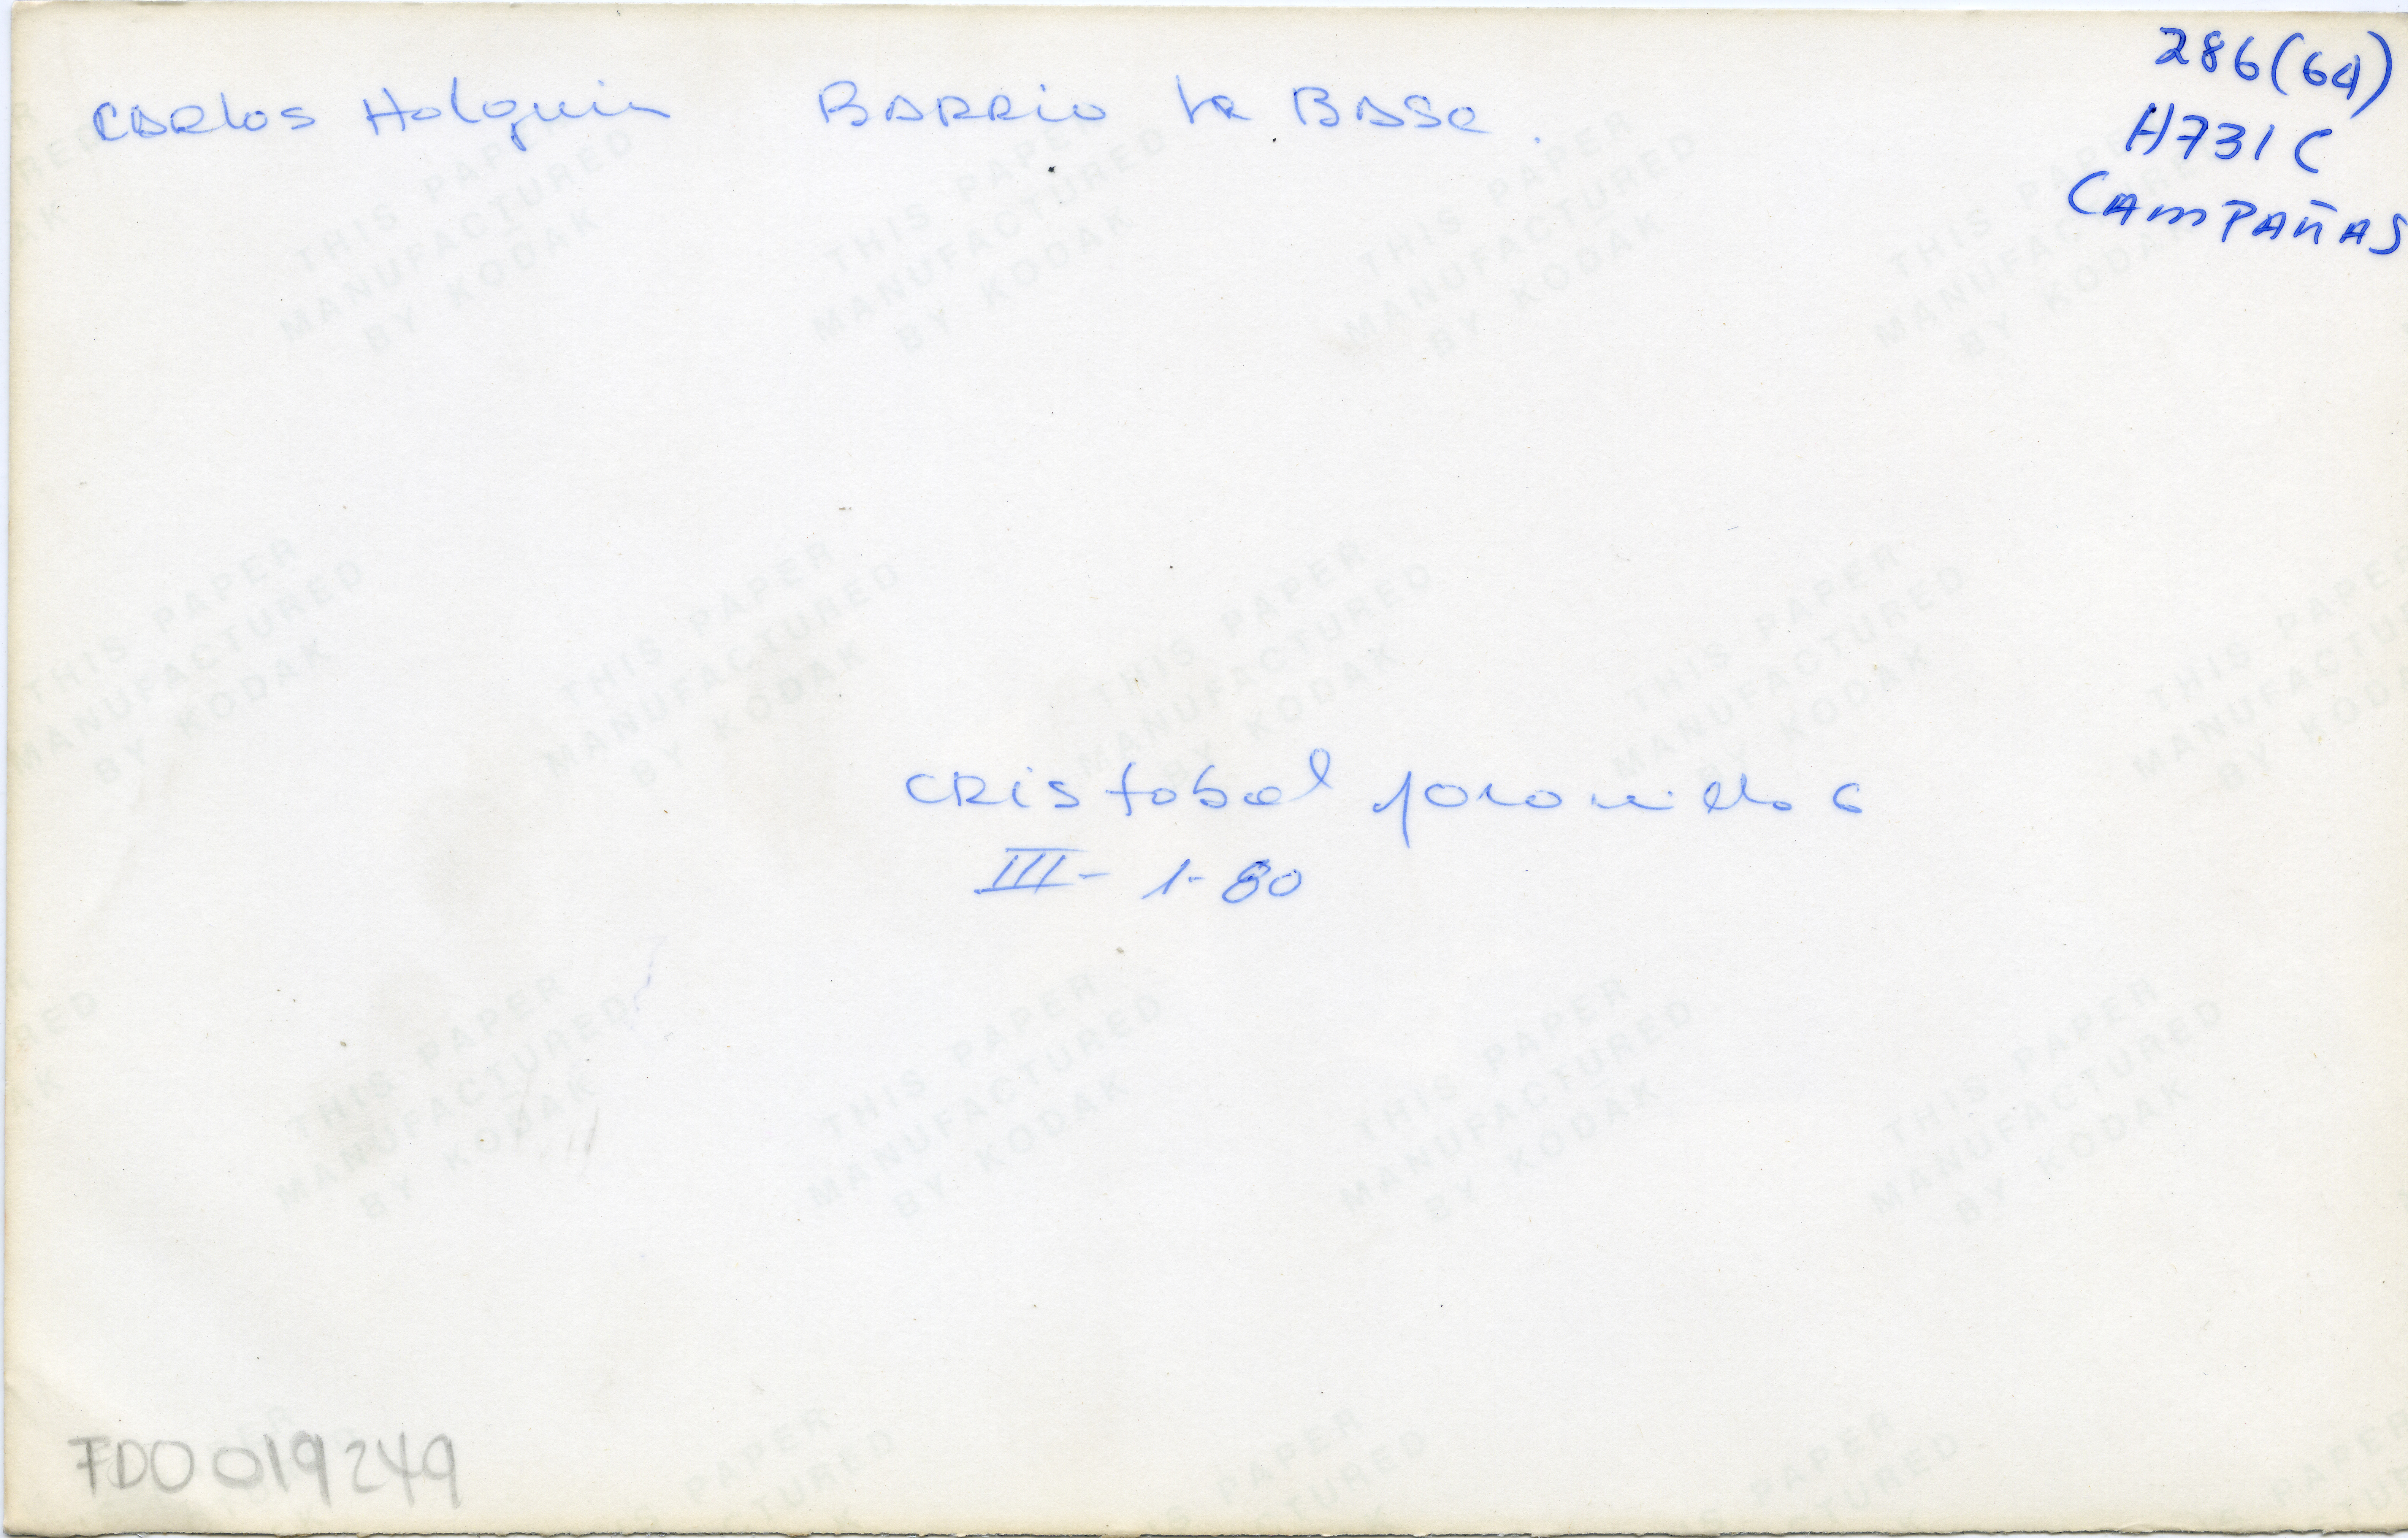 286(64)
H731C
CAMPAÑAS
Carlos Holguin BARRIO La BASE.
CRistobal
III- 1-80
FDO 019249
THIS PAPER
MANUFACTURED
BY KODAK